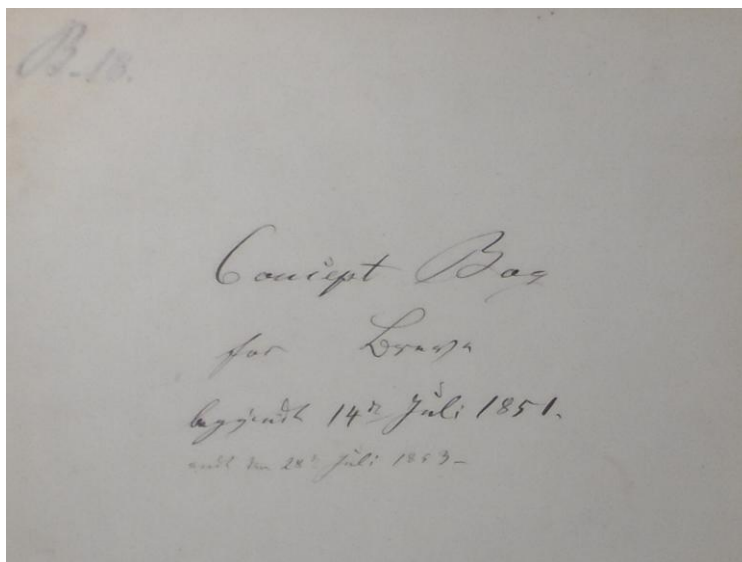 B-18.
Concept Bog
for Breve
begyndt 14de Juli 1851.
endt den 28de Juli 1853-